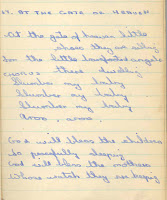 AT THE GATE OF HEAVEN
At the gate of heaven little
shoes they are selling
for the little barefooted angels
CHORUS: there dwelling
Slumber my baby
Slumber my baby
Slumber my baby
Arroo, arroo.
God will bless the children
so peacefully sleeping
God will bless the mothers
Whose watch they are keeping